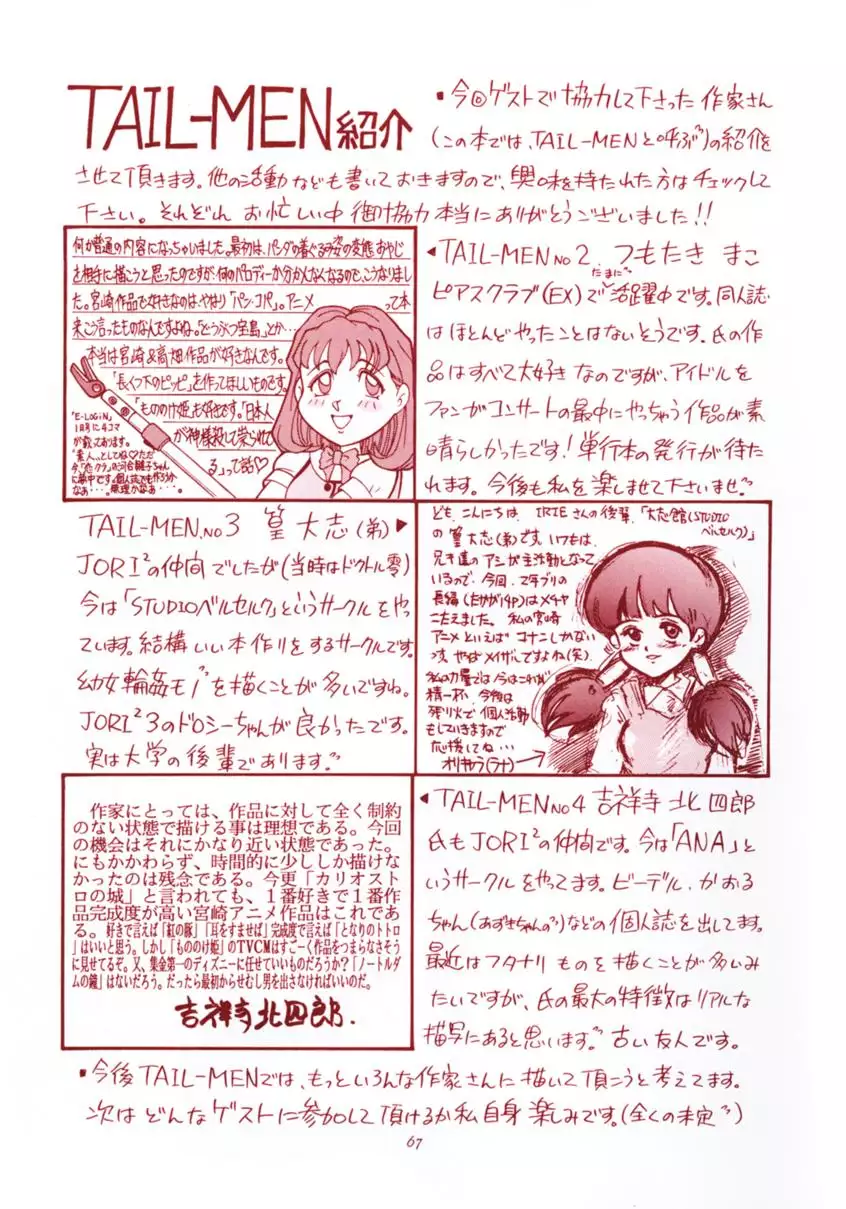 TAIL-MEN紹介
・今回ゲストで協力して下さった作家さん
(この本では、TAIL-MENと呼ぶ)の紹介を
させて頂きます。他の活動なども書いておきますので、興味を持たれた方はチェックして
下さい。それぞれお忙しい中御協力本当にありがとうございました!!
何か普通の内容になっちゃいました。最初は、パンダの着ぐるみ姿の変態おやじ
を相手に描こうと思ったのですが、何のパロディーか分かんなくなるので、こうなりまし
た。宮崎作品で好きなのは、やはり「パン・コパ」。アニメって本
来こう言ったものなんですよね。「どうぶつ宝島」とか…
本当は宮崎&高畑作品が好きなんです。
「長くつ下のピッピ」を作ってほしいものです。
「もののけ姫」も好きです。「日本人
が神様殺して栄えてる」って話♡
「E-LOGiN」
1月号に4コマ
が載っております。
"素人"としてね♡ただ
◂TAIL-MEN No2. つもたき まこ
ピアスクラブ(EX)でたまに活躍中です。同人誌
はほとんどやったことはないそうです。氏の作
品はすべて大好きなのですが、アイドルを
ファンがコンサートの最中にやっちゃう作品が素
晴らしかったです!単行本の発行が待た
れます。今後も私を楽しませて下さいませ。
TAIL-MEN.No3 篁 大志(弟)▸
JORI²の仲間でしたが(当時はドクトル零)
今は「STUDIOベルセルク」というサークルをや
っています。結構いい本作りをするサークルです。
実は大学の後輩であります。
ども、こんにちは。IRIEさんの後輩、「大志館(STUDIO
ベルセルク)」
の篁大志(弟)です。いつもは、
兄キ達のアシが主活動となって
いるので、今回、2年ブリの
長編(たかが14P)はメチャ
こたえました。私の宮崎
アニメといえばコナンしかない
精一杯、今後は
残り火で個人活動
もしていきますので
応援してね…
オリキャラ(ラナ)
作家にとっては、作品に対して全く制約
のない状態で描ける事は理想である。今回
の機会はそれにかなり近い状態であった。
にもかかわらず、時間的に少ししか描けな
かったのは残念である。今更「カリオスト
ロの城」と言われても、1番好きで1番作
品完成度が高い宮崎アニメ作品はこれであ
る。好きで言えば「紅の豚」「耳をすませば」完成度で言えば「となりのトトロ
」はいいと思う。しかし「もののけ姫」のTVCMはすごーく作品をつまらなさそう
に見せてるぞ。又、集金第一のディズニーに任せていいものだろうか?「ノートルダ
ムの鐘」はないだろう。だったら最初からせむし男を出さなければいいのだ。
吉祥寺北四郎.
◂TAIL-MEN No4 吉祥寺 北四郎
氏もJORI²の仲間です。今は「ANA」と
いうサークルをやってます。ビーデル、かおる
ちゃん(あずきちゃんの)などの個人誌を出してます。
最近はフタナリものを描くことが多いみ
たいですが、氏の最大の特徴はリアルな
描写にあると思います。古い友人です。
・今後TAIL-MENでは、もっといろんな作家さんに描いて頂こうと考えてます。
次はどんなゲストに参加して頂けるか私自身楽しみです。(全くの未定)
67